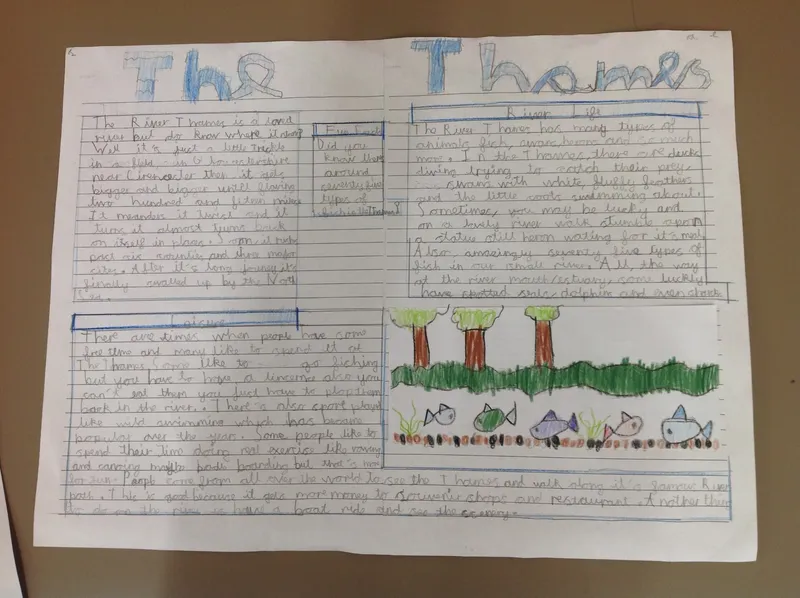 The Thames
The River Thames is a loved
river but do know where it starts?
Well it's just a little trickle
in a field in
near Cirencester then it gets
bigger and bigger untill flowing
two hundred and fifteen miles
It meanders it twist and it
turns it almost turns back
on itself in places. Soon it
past six counties and three major
cities. After it's long journey it's
finally swalled up by the North
Sea.
Fun Fact
Did you
know there
around
seventy five
types of
fish in the Thames?
River Life
The River Thames has many types of
animals fish, swans, herons and so much
more. In the Thames, there are ducks
diving trying to catch their prey
swans with white, fluffy feathers
and the little coots swimming about.
Sometimes, you may be lucky and
on a lovely river walk stumble apon
a statue still heron waiting for it's meal
Also amazingly seventy five types of
fish in our small river. All, the way
at the river mouth/estuary, some luckly
have spotted seals, dolphin and even sharks
Leisure
There are times when people have some
free time and many like to spend it at
The Thames. Some like to go fishing
but you have to have a lincence also you
can't eat them you just have to plop them
back in the river. There's also sport played
like wild swimming which has became
popular over the year. Some people like to
spend their time doing real exercise like rowing
and canoing maybe padle boarding but that's more
for fun. People come from all over the world to see the Thames and walk along it's famour River
path. This is good because it gets more money to souvenir shops and restaurant. Another thing
to do on the river is have a boat ride and see the scenery.